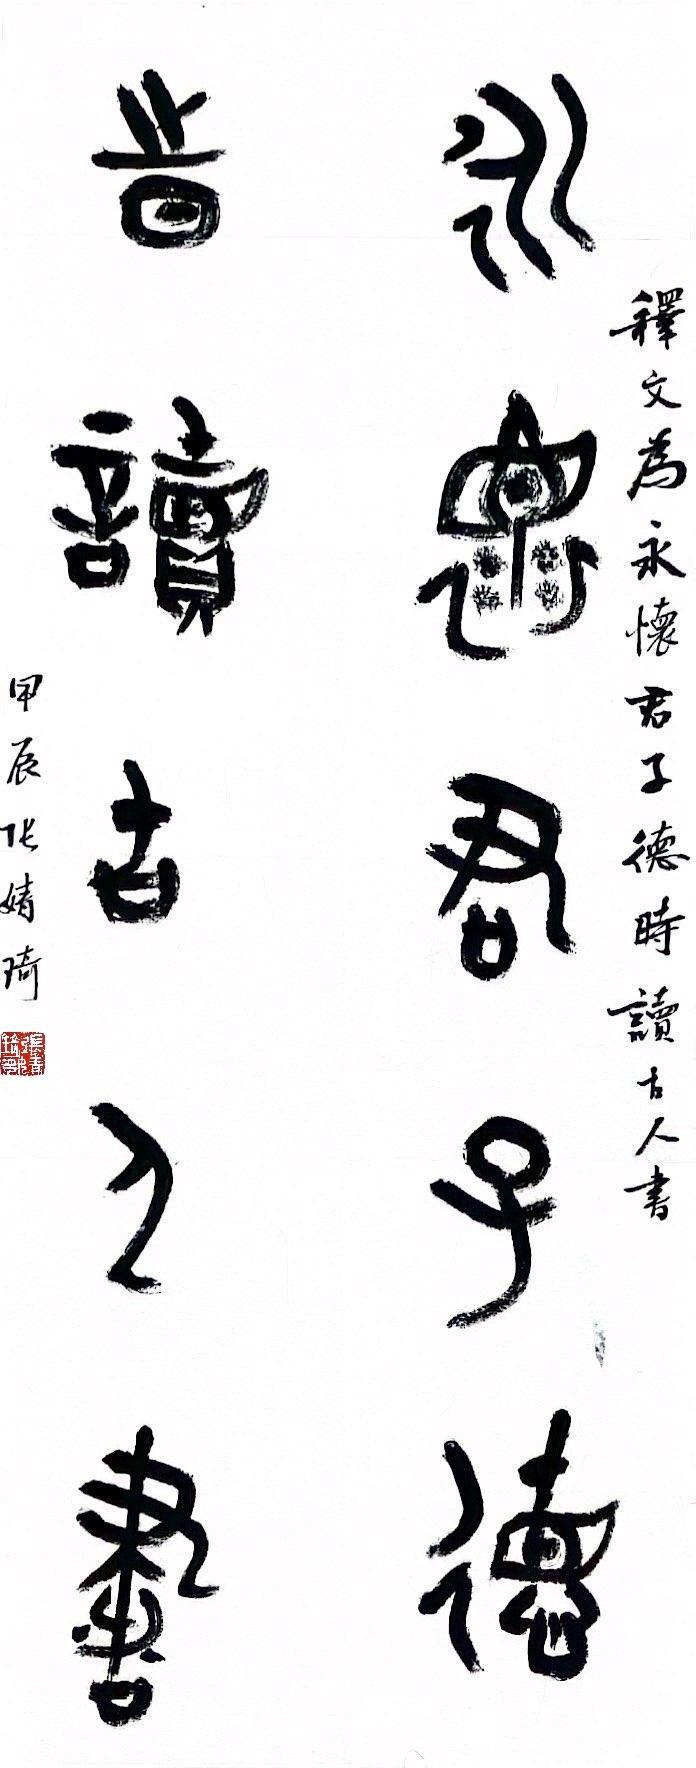 釋文為永懷君子德時讀古人書
永懷君子德
時讀古人書
甲辰張婧琦